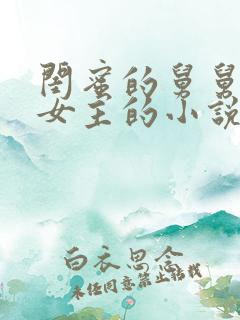 閨蜜的舅舅
女主的小說
白衣思念
未经同意禁止转载